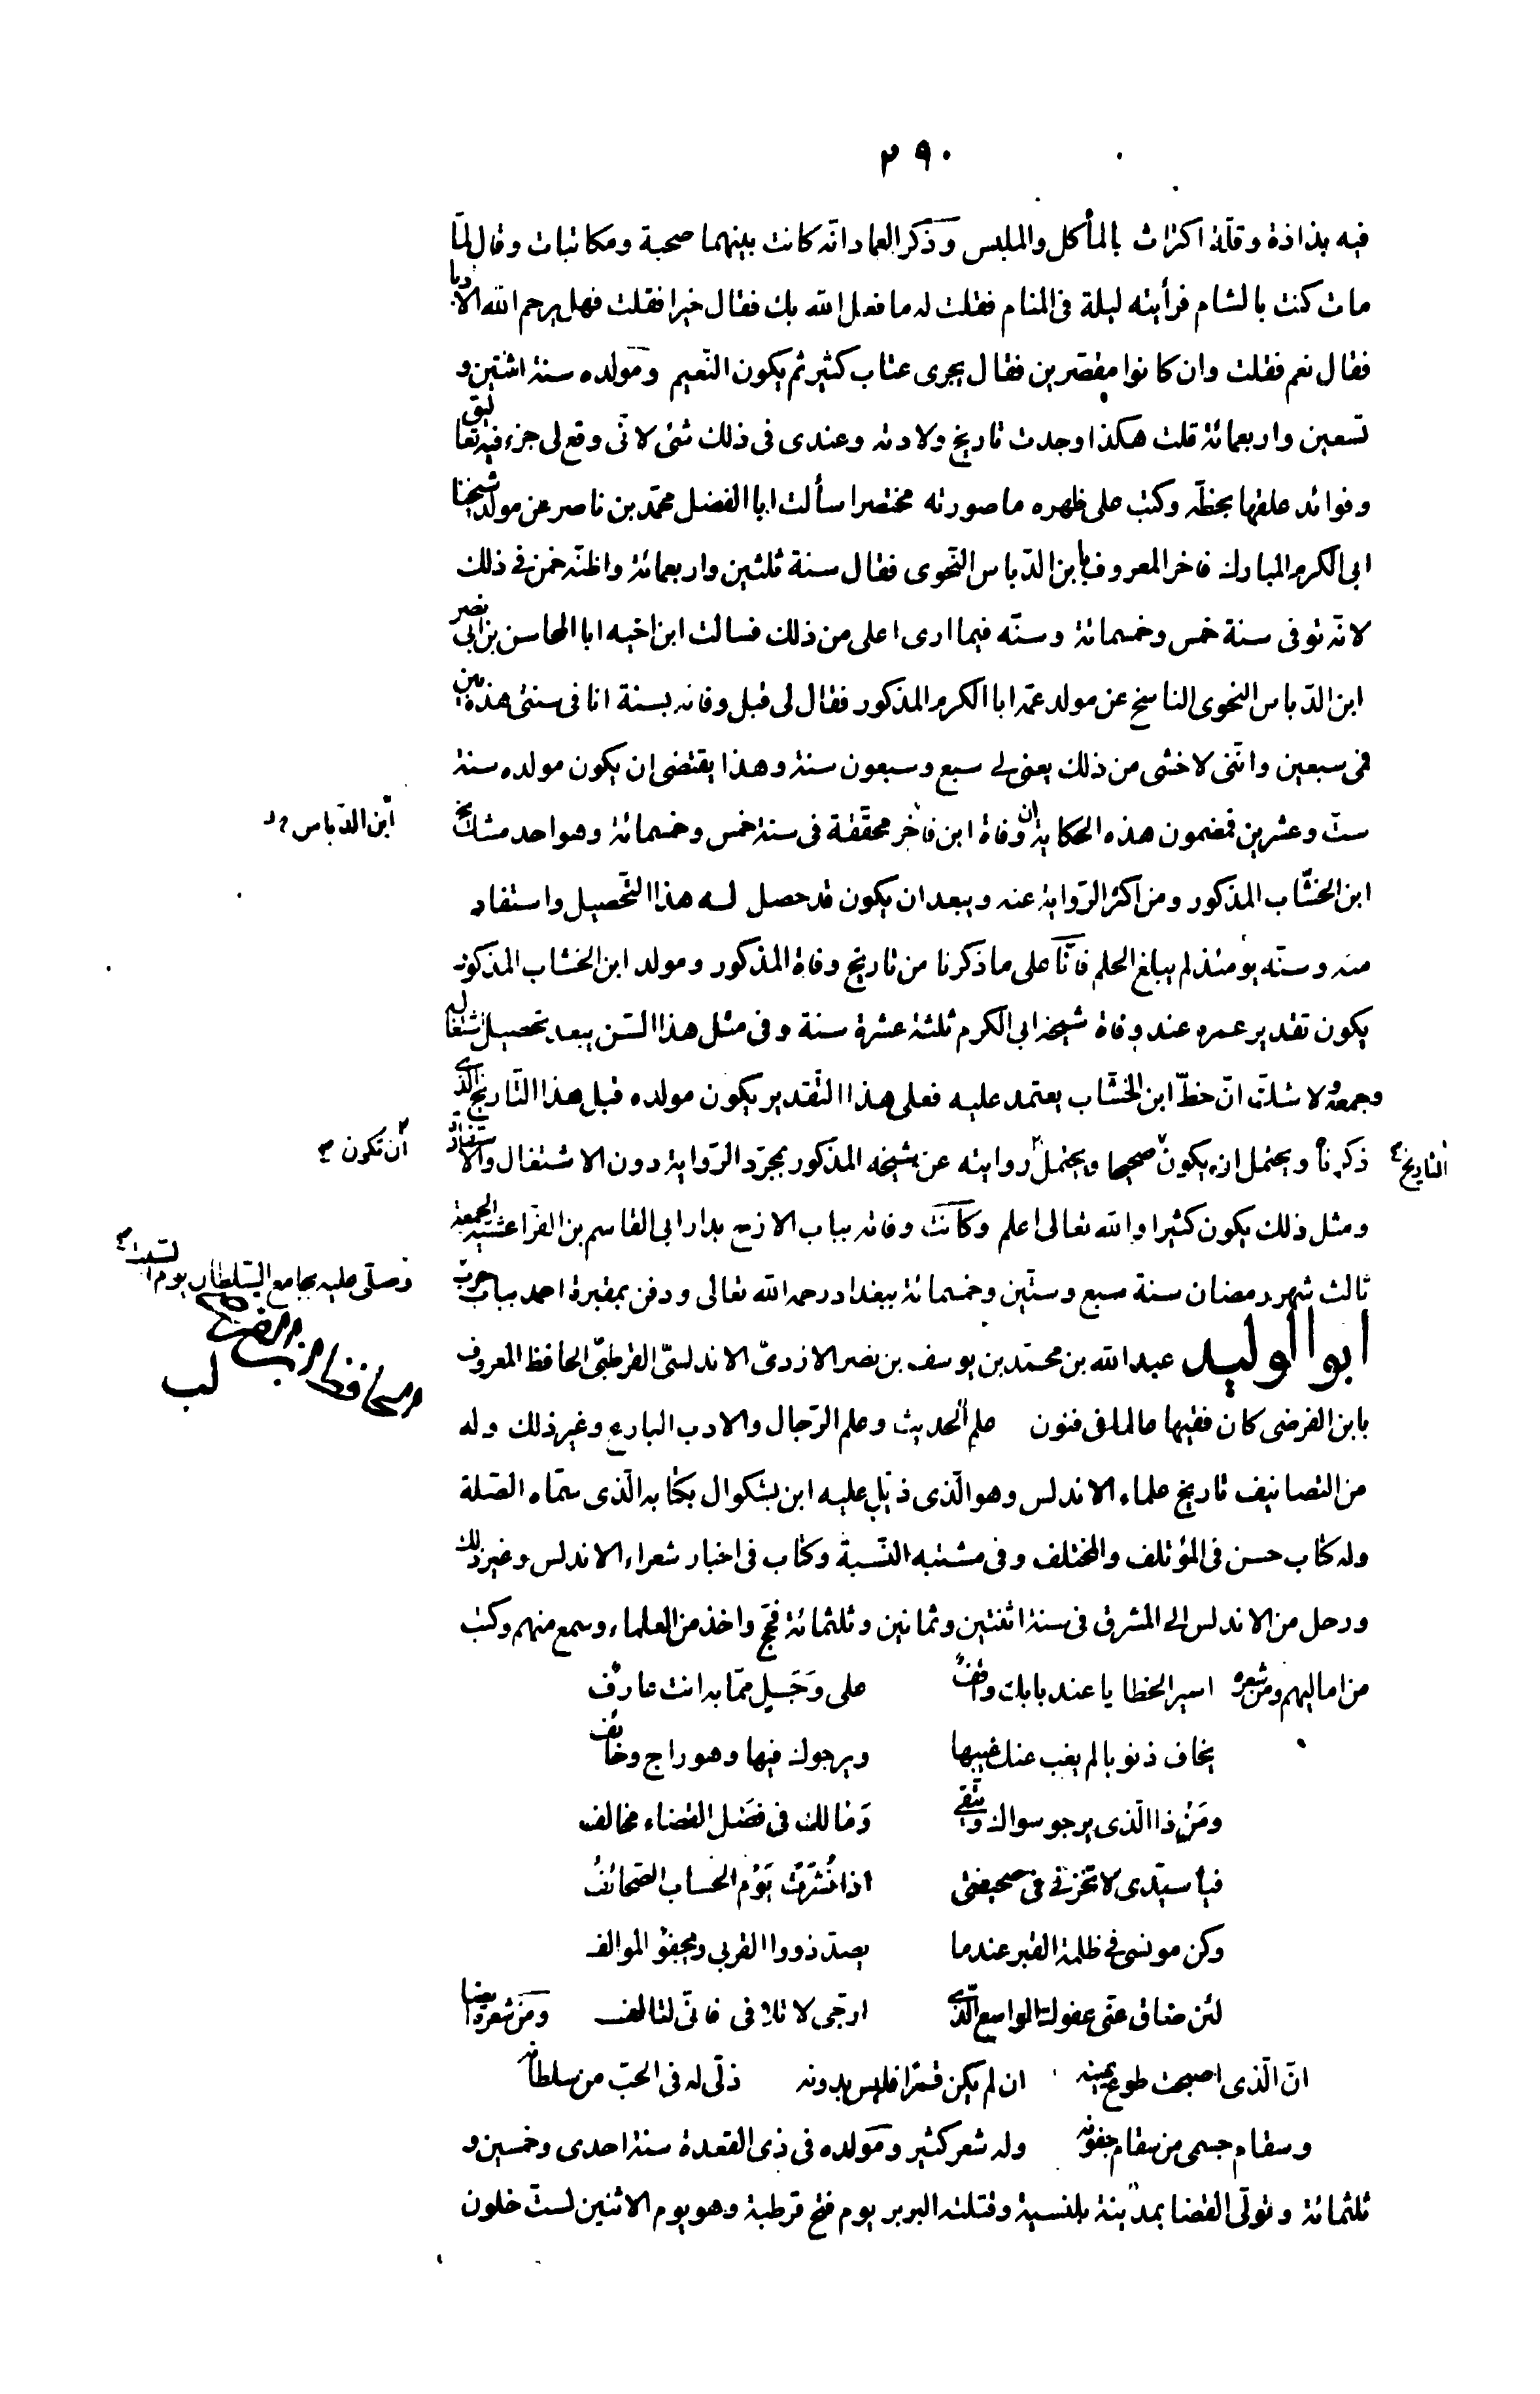 ٢٩٠
فيه بذاذة وقلّة اكتراث بالمأكل والملبس وذكر العماد انّه كانت بينهما صحبة ومكاتبات وقال لمّا
مات كنت بالشام فرأيته ليلة فى المنام فقلت له ما فعل الله بك فقال خيرا فقلت فهل يرحم الله الادبا
فقال نعم فقلت وان كانوا مقصّرين فقال يجرى عتاب كثير ثم يكون النّعيم ومولده سنة اثنتين و
تسعين واربعمائة قلت هكذا وجدت تاريخ ولادته وعندى فى ذلك شئ لانّى وقع لى جزء فيه تعاليق
وفوائد علقها بخطّه وكتب على ظهره ما صورته مختصرا سألت ابا الفضل محمّد بن ناصر عن مولد شيخنا
ابى الكرم المبارك فاخر المعروف بابن الدّباس النّحوى فقال سنة ثلثين واربعمائة واظنّه خمن فى ذلك
لانّه توفى سنة خمس وخمسمائة وسنّه فيما ارى اعلى من ذلك فسالت ابن اخيه ابا المحاسن بن ابى نصر
ابن الدّباس النحوى الناسخ عن مولد عمّه ابا الكرم المذكور فقال لى قبل وفاته بسنة انا فى سنتى هذه بين
فى سبعين وانّنى لاخشى من ذلك يعنى لى سبع وسبعون سنة وهذا يقتضى ان يكون مولده سنة
ستّ وعشرين فمضمون هذه الحكاية ان وفاة ابن فاخر محققة فى سنة خمس وخمسمائة وهو احد مشايخ
ابن الدّباس
ابن الخشّاب المذكور ومن اكثر الرّواية عنه ويبعد ان يكون قد حصل له هذا التّحصيل واستفاد
منه وسنّه يومئذ لم يبلغ الحلم فانّا على ما ذكرنا من تاريخ وفاة المذكور ومولد ابن الخشاب المذكور
يكون تقدير عمره عند وفاة شيخه ابى الكرم ثلثة عشرة سنة وفى مثل هذا السّن يبعد تحصيل اشتغاله
وجمعه ولا شكّ انّ خطّ ابن الخشّاب يعتمد عليه فعلى هذا التّقدير يكون مولده قبل هذا التّاريخ الّذى
ذكرناه ويحتمل ان يكون صحيحا ويحتمل روايته عن شيخه المذكور بمجرّد الرّواية دون الاشتغال والاستفادة
التاريخ
ان تكون
ومثل ذلك يكون كثيرا والله تعالى اعلم وكانت وفاته بباب الازج بدار ابى القاسم بن الفرّا عشيّة الجمعة
ثالث شهر رمضان سنة سبع وستّين وخمسمائة ببغداد رحمه الله تعالى ودفن بمقبرة احمد بباب حرب
وصلّى عليه بجامع السّلطان يوم السّبت
ابو الوليد عبد الله بن محمّد بن يوسف بن نصر الازدىّ الاندلسىّ القرطبىّ الحافظ المعروف
بابن الفرضى كان فقيها عالما فى فنون علم الحديث وعلم الرّجال والادب البارع وغير ذلك وله
من التصانيف تاريخ علماء الاندلس وهو الّذى ذيّل عليه ابن بشكوال بكتابه الّذى سمّاه الصّلة
وله كتاب حسن فى المؤتلف والمختلف وفى مشتبه النّسبة وكتاب فى اخبار شعراء الاندلس وغير ذلك
ورحل من الاندلس الى المشرق فى سنة اثنتين وثمانين وثلثمائة فحجّ واخذ من العلماء وسمع منهم وكتب
من اماليهم ومن شعره اسير الخطايا عند بابك واقف على وَجَلٍ ممّا به انت عارف
يخاف ذنوبا لم يغب عنك غيبها ويرجوك فيها وهو راج وخائف
ومَنْ ذا الّذى يرجو سواك ويتّقى وَمَا لك فى فصَل القضاء مخالف
فيا سيّدى لا تخزنى فى صحيفتى اذا نُشِرَتْ يَوْم الحساب الصّحائفُ
وكن مونسى فى ظلمة القبر عندما يصدّ ذووا القربى ويجفو الموالف
لئن ضاق عنّى عفوك الواسع الّذى ارجّى لاتلافى فانّى لتالف ومن شعره ايضا
انّ الّذى اصبحت طوع يمينه ان لم يكن قمرا فليس بدونه ذلّى له فى الحبّ من سلطانه
وسقام جسمى من سقام جفونه وله شعر كثير ومولده فى ذى القعدة سنة احدى وخمسين و
ثلثمائة وتولّى القضا بمدينة بلنسية وقتلته البربر يوم فتح قرطبة وهو يوم الاثنين لستّ خلون